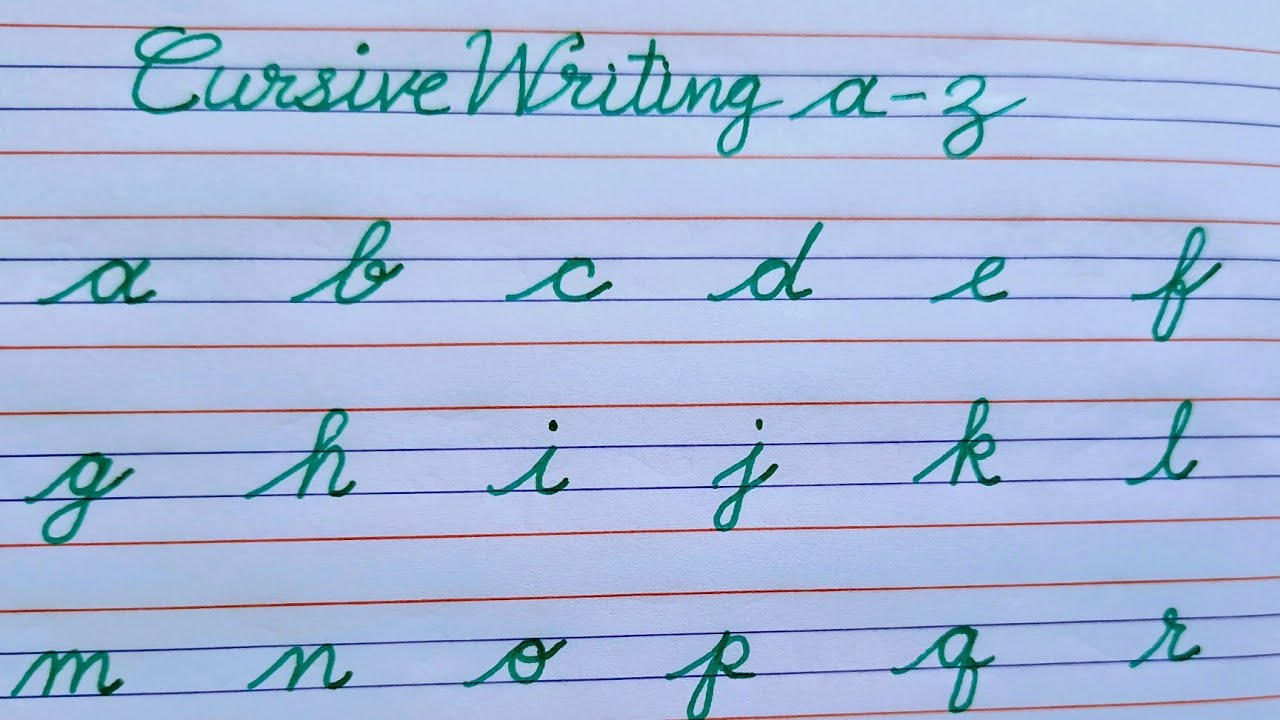 Cursive Writing a-z
a b c d e f
g h i j k l
m n o p q r